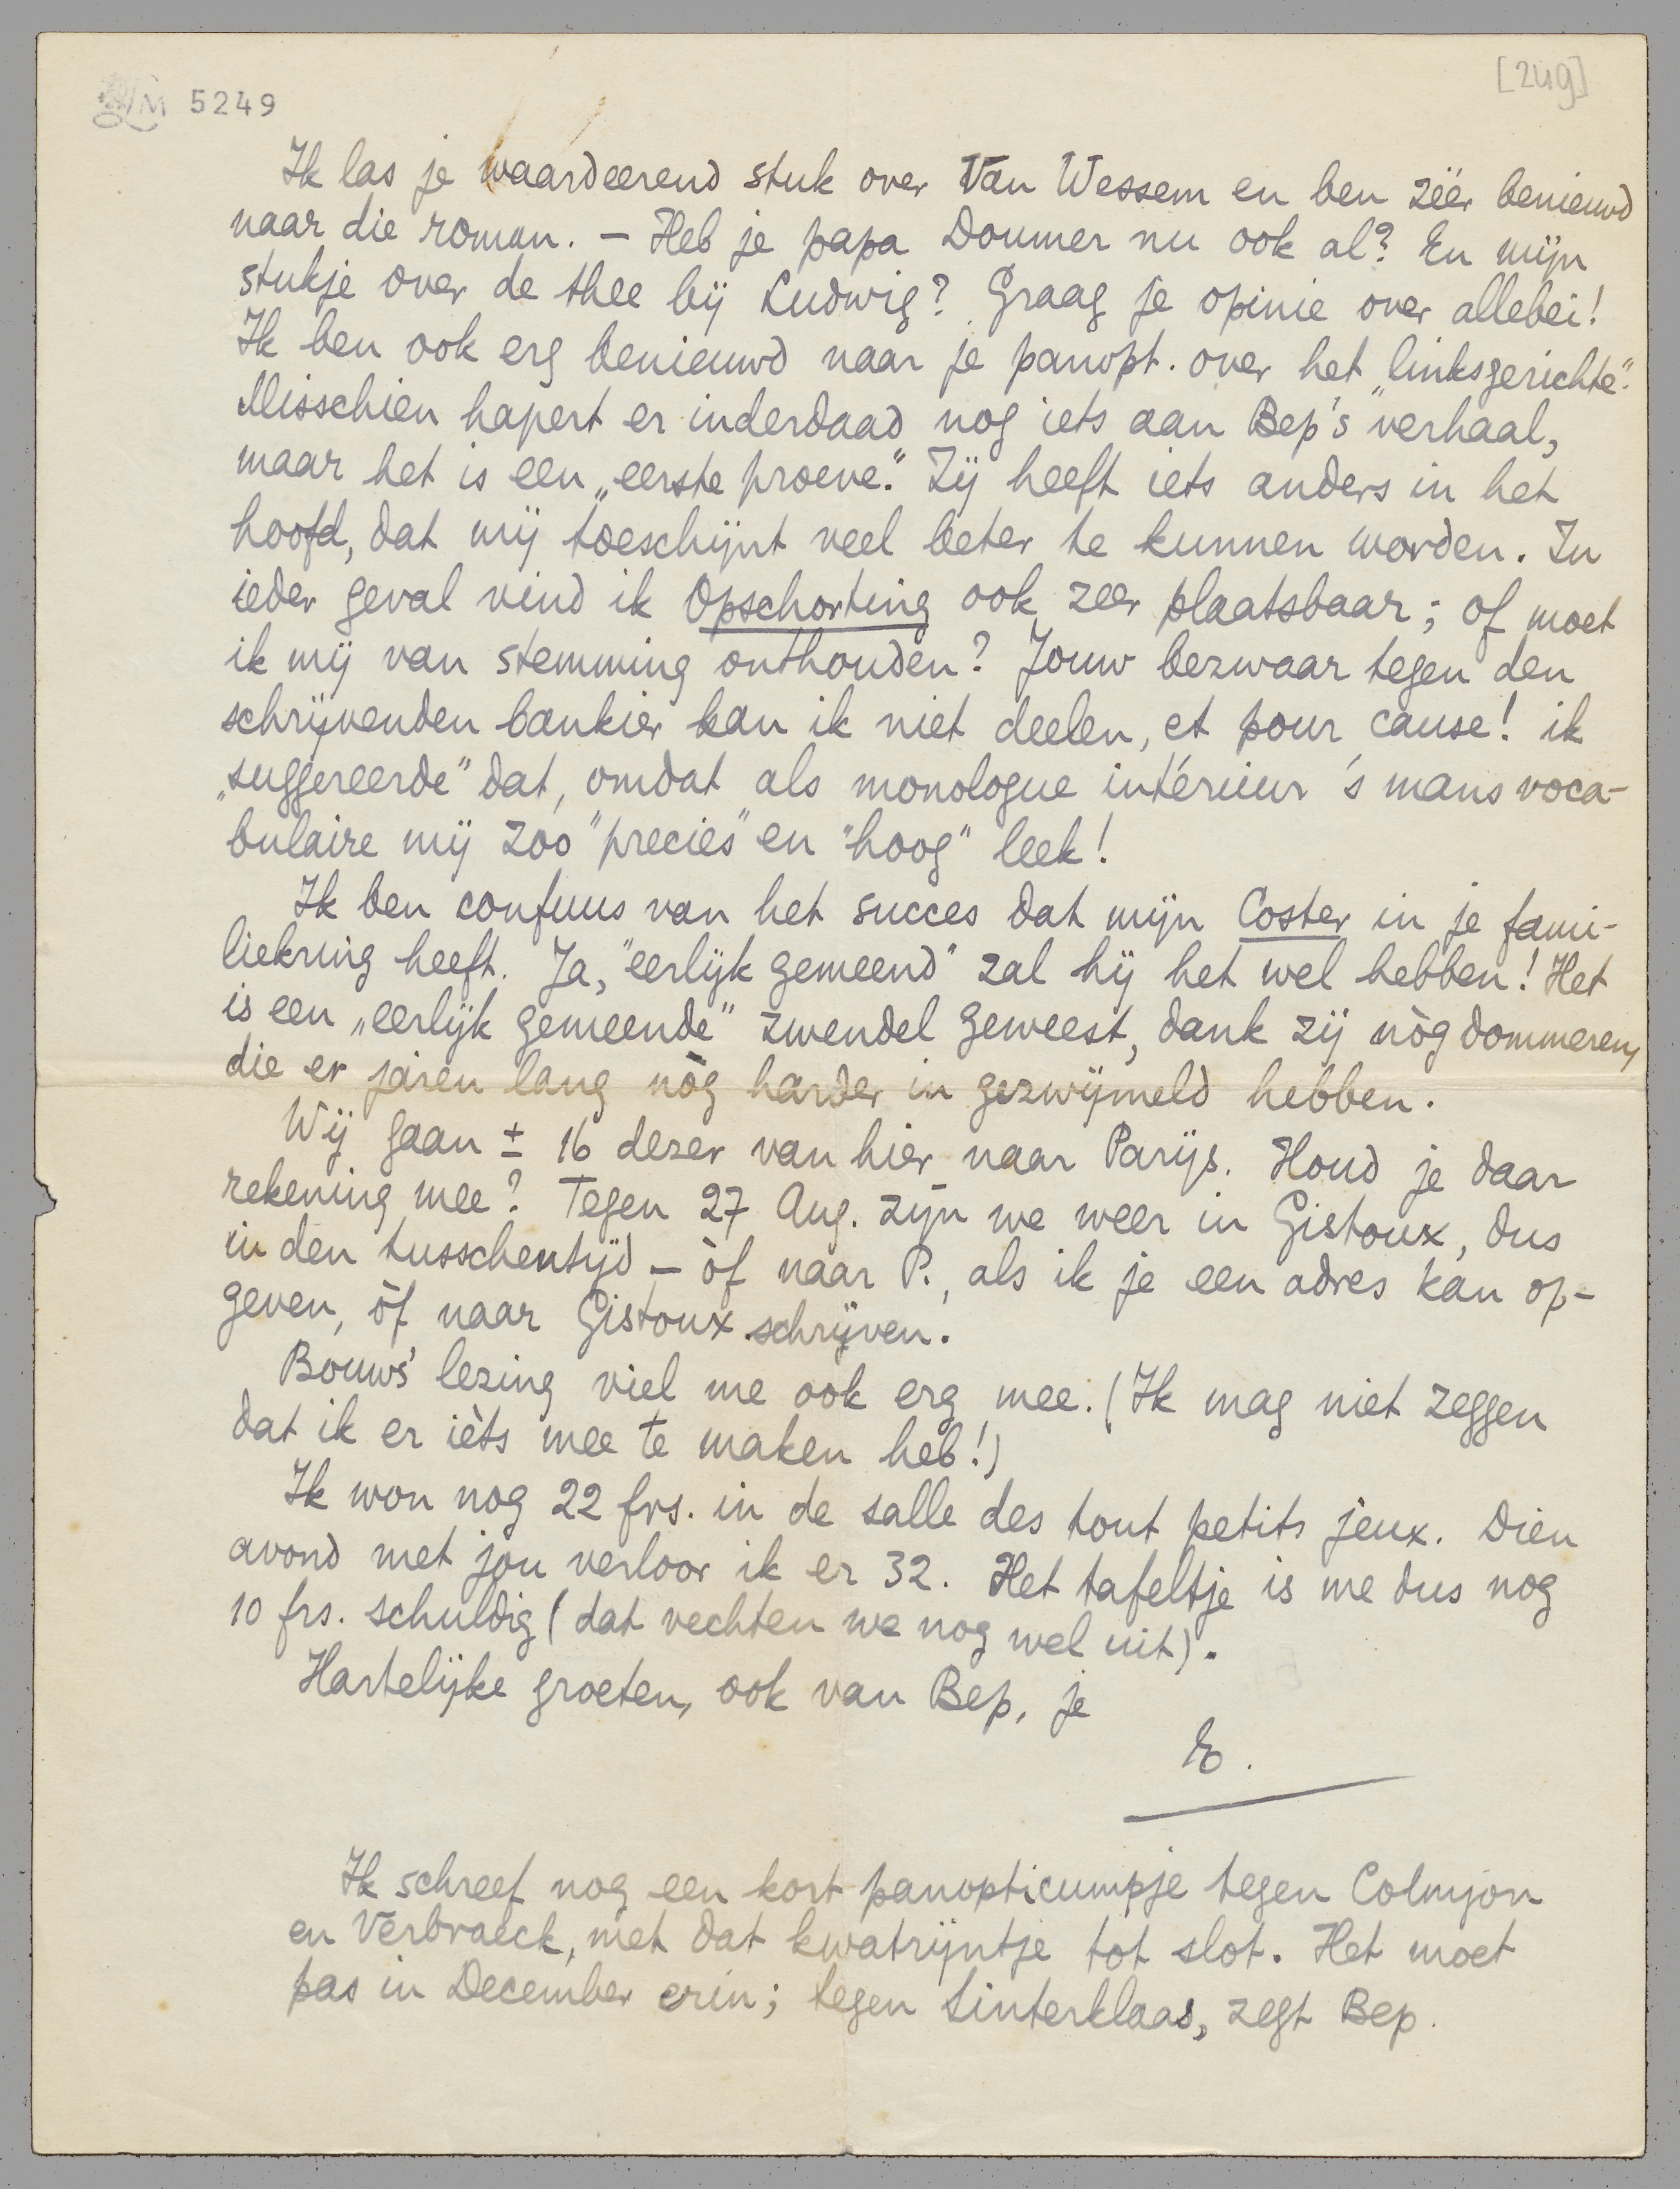 LM 5249
[249]
Ik las je waardeerend stuk over Van Wessem en ben zéér benieuwd
naar die roman. — Heb je papa Doumer nu ook al? En mijn
stukje over de thee bij Ludwig? Graag je opinie over allebei!
Ik ben ook erg benieuwd naar je panopt. over het „linksgerichte".
Misschien hapert er inderdaad nog iets aan Bep's verhaal,
maar het is een „eerste proeve". Zij heeft iets anders in het
hoofd, dat mij toeschijnt veel beter te kunnen worden. In
ieder geval vind ik Opschorting ook zeer plaatsbaar; of moet
ik mij van stemming onthouden? Jouw bezwaar tegen den
schrijvenden bankier kan ik niet deelen, et pour cause! ik
„suggereerde" dat, omdat als monologue intérieur 's mans voca-
bulaire mij zoo "precies" en "hoog" leek!
Ik ben confuus van het succes dat mijn Coster in je fami-
liekring heeft. Ja, "eerlijk gemeend" zal hij het wel hebben! Het
is een „eerlijk gemeende" zwendel geweest, dank zij nòg dommeren,
die er jaren lang nòg harder in gezwijmeld hebben.
Wij gaan ± 16 dezer van hier naar Parijs. Houd je daar
rekening mee? Tegen 27 Aug. zijn we weer in Gistoux, dus
in den tusschentijd — òf naar P., als ik je een adres kan op-
geven, òf naar Gistoux schrijven.
Bouws' lezing viel me ook erg mee. (Ik mag niet zeggen
dat ik er ièts mee te maken heb!)
Ik won nog 22 frs. in de salle des tout petits jeux. Dien
avond met jou verloor ik er 32. Het tafeltje is me dus nog
10 frs. schuldig (dat vechten we nog wel uit).
Hartelijke groeten, ook van Bep, je
E.
Ik schreef nog een kort panopticumpje tegen Colmjon
en Verbraeck, met dat kwatrijntje tot slot. Het moet
pas in December erin; tegen Sinterklaas, zegt Bep.